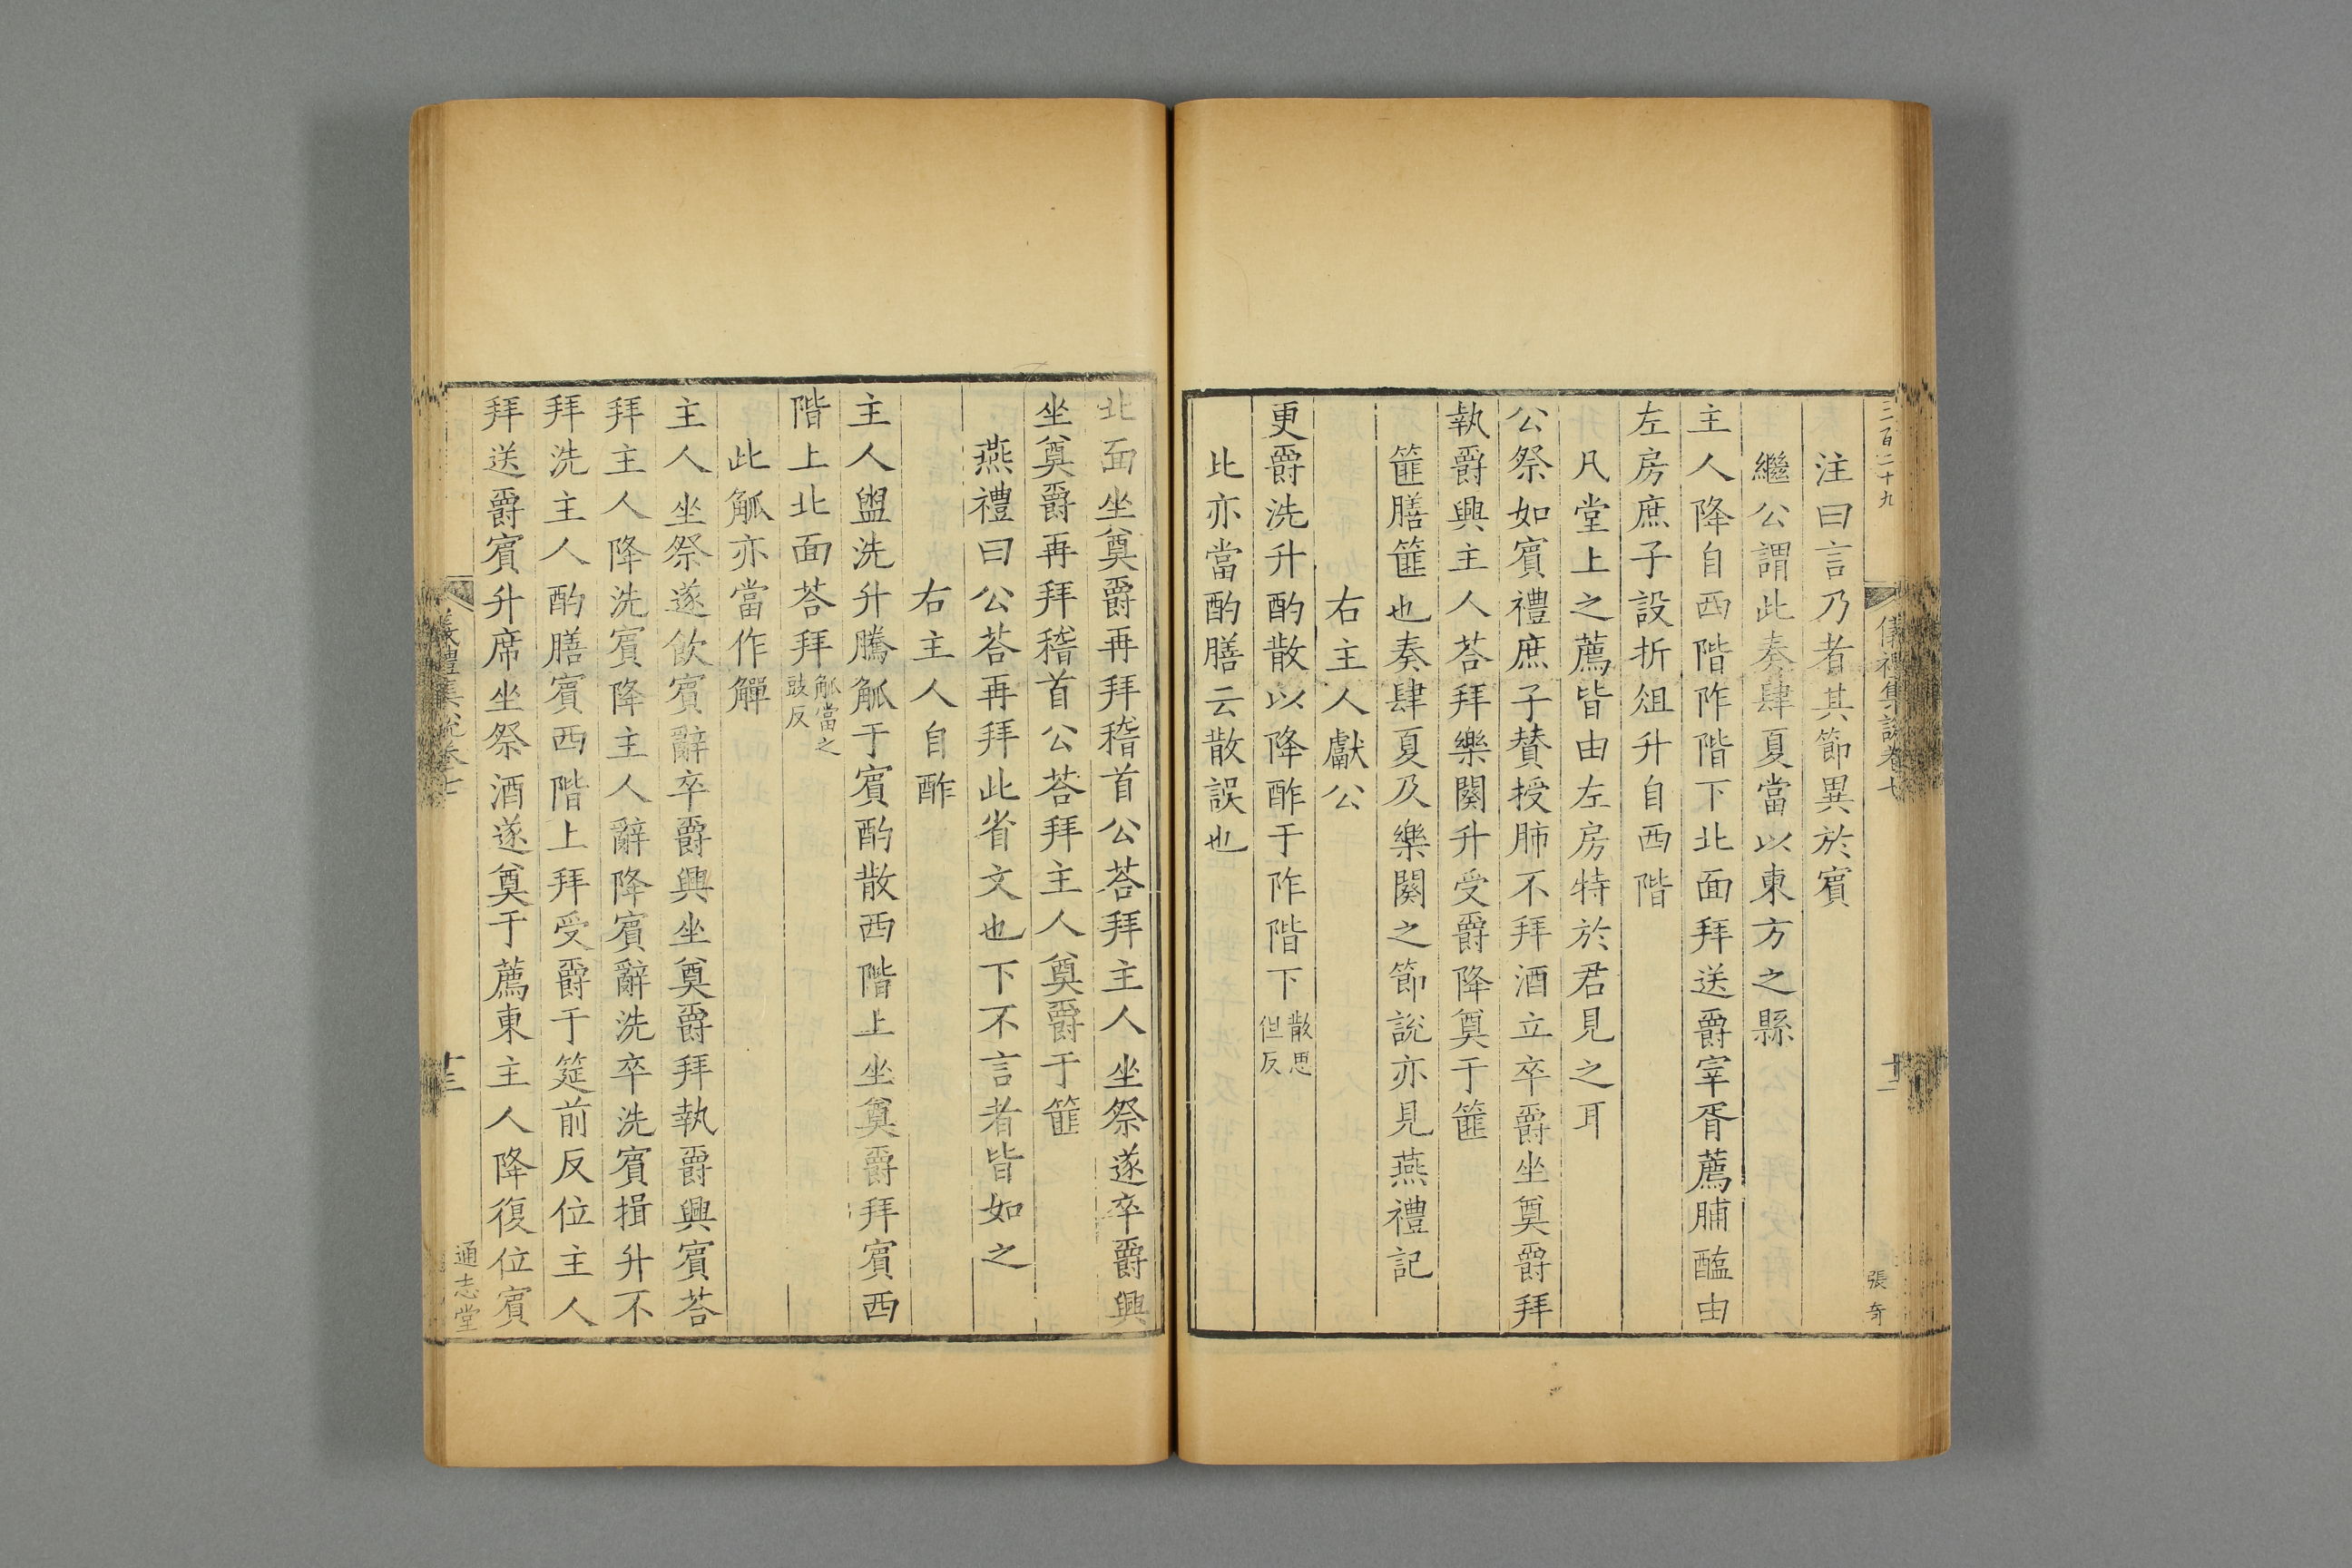 三百二十九
儀禮集說卷七
十二
張奇
注曰言乃者其節異於賓
繼公謂此奏肆夏當以東方之縣
主人降自西階阼階下北面拜送爵宰胥薦脯醢由
左房庶子設折俎升自西階
凡堂上之薦皆由左房特於君見之耳
公祭如賓禮庶子贊授肺不拜酒立卒爵坐奠爵拜
執爵興主人荅拜樂闋升受爵降奠于篚
篚膳篚也奏肆夏及樂闋之節說亦見燕禮記
右主人獻公
更爵洗升酌散以降酢于阼階下散思但反
比亦當酌膳云散誤也
北面坐奠爵再拜稽首公荅拜主人坐祭遂卒爵興
坐奠爵再拜稽首公荅拜主人奠爵于篚
燕禮曰公荅再拜此省文也下不言者皆如之
右主人自酢
主人盥洗升騰觚于賓酌散西階上坐奠爵拜賓西
階上北面荅拜觚當之豉反
此觚亦當作觶
主人坐祭遂飲賓辭卒爵興坐奠爵拜執爵興賓荅
拜主人降洗賓降主人辭降賓辭洗卒洗賓揖升不
拜洗主人酌膳賓西階上拜受爵于筵前反位主人
拜送爵賓升席坐祭酒遂奠于薦東主人降復位賓
儀禮集說卷七
十三
通志堂